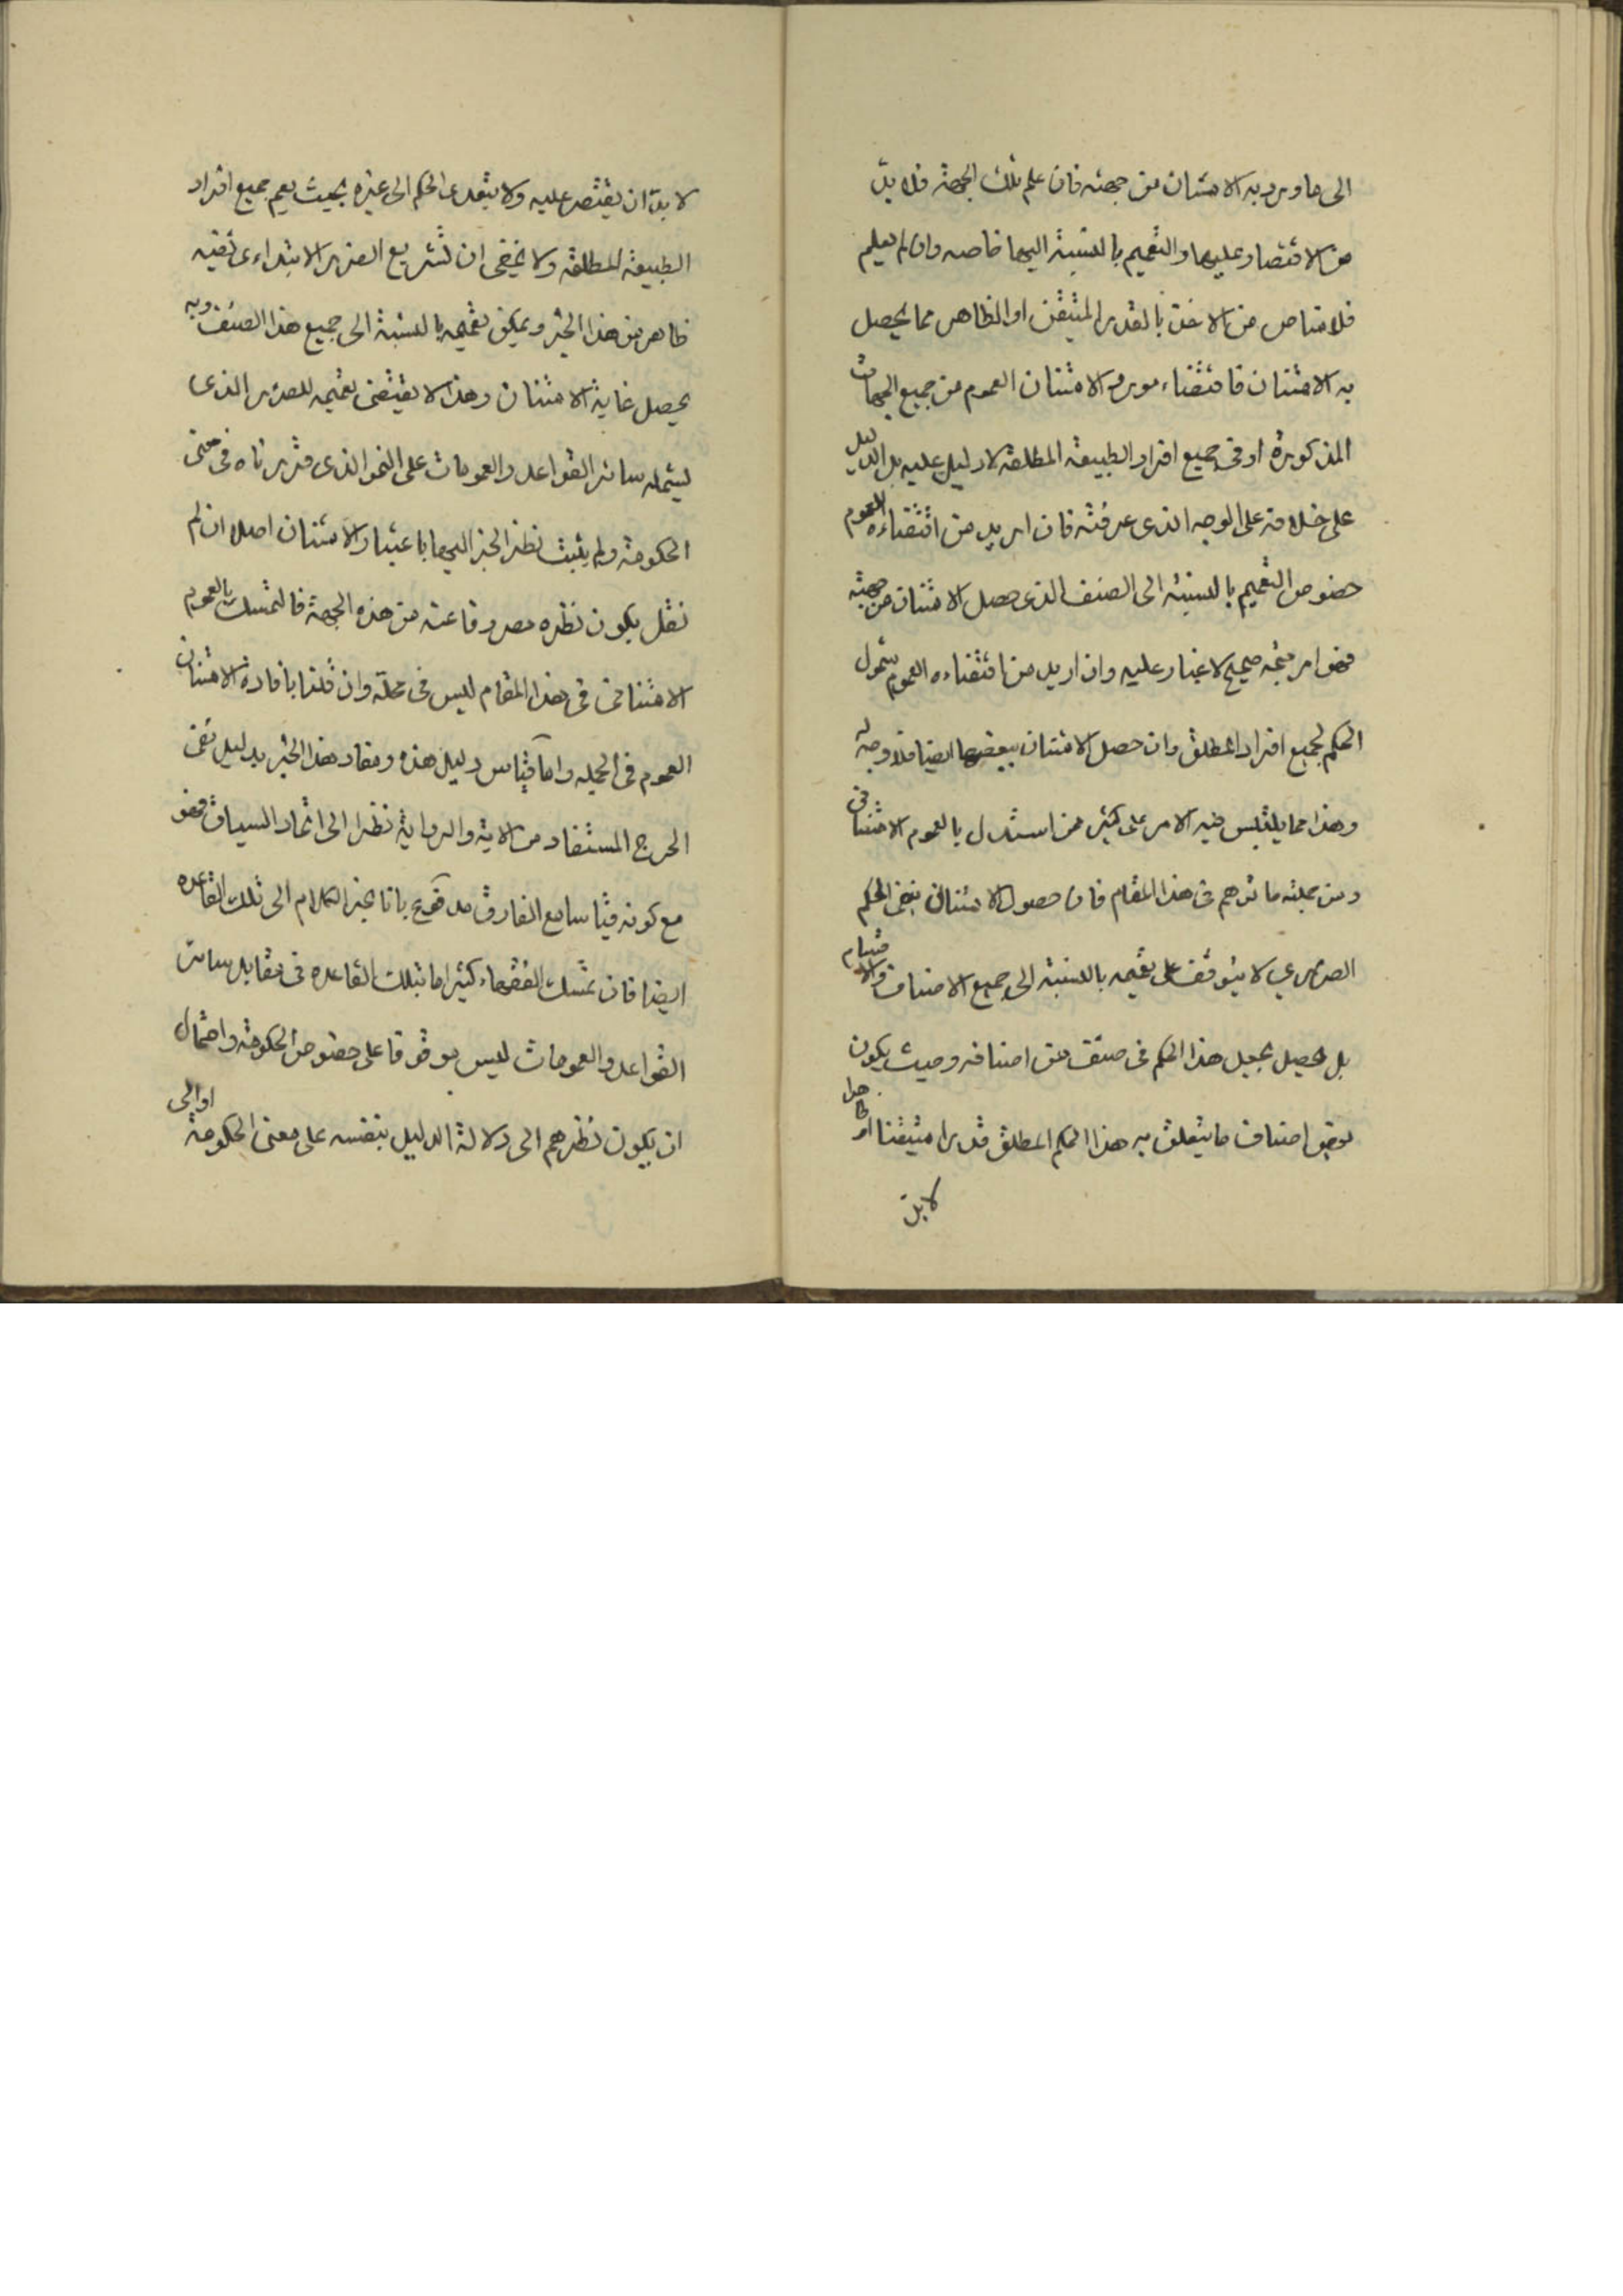 الى ما ورد به الامتنان من جهته فان علم تلك الجهة فلا بدّ
من الاقتصار عليها والتعميم بالنسبة اليها خاصه وان لم يعلم
فلا مناص من الاخذ بالقدر المتيقن او الظاهر مما يحصل
به الامتنان فاقتضاء مورد الامتنان العموم من جميع الجهات
المذكورة او في جميع افراد الطبيعة المطلقة لا دليل عليه بل الدليل
على خلافه على الوجه الذى عرفته فان اريد من اقتضاءه العموم
خصوص التعميم بالنسبة الى الصنف الذى حصل الامتنان من جهته
فهو امر متجه صحيح لا غبار عليه وان اريد من اقتضاءه العموم شمول
الحكم لجميع افراد المطلق وان حصل الامتنان ببعضها ايضا فلا وجه له
وهذا مما يلتبس فيه الامر على كثير ممن استدل بالعموم الامتنانى
ومن جملته ما توهم فى هذا المقام فان حصول الامتنان بنفى الحكم
الضررى لا يتوقف على تعميمه بالنسبة الى جميع الاصناف والاقسام
بل يحصل بجعل هذا الحكم فى صنف من اصنافه وحيث يكون
بعض اصناف ما يتعلق به هذا الحكم المطلق قدرا متيقنا او ظاهرا
لا بدّ
لا بدّ ان يقتصر عليه ولا يتعدى الحكم الى غيره بحيث يعم جميع افراد
الطبيعة المطلقة ولا يخفى ان تشريع الضرر الابتداءى نفيه
ظاهر من هذا الخبر ويمكن تعميمه بالنسبة الى جميع هذا الصنف وبه
يحصل غاية الامتنان وهذا لا يقتضى تعميمه للضرر الذى
يشمله سائر القواعد والعمومات على النحو الذى قررناه فى معنى
الحكومة ولم يثبت نظر الخبر اليها باعتبار الامتنان اصلا ان لم
نقل بكون نظره مصروفا عنه من هذه الجهة فالتمسك بالعموم
الامتنانى فى هذا المقام ليس فى محله وان قلنا بافادة الامتنان
العموم فى الجملة واما قياس دليل هذه ومفاد هذا الخبر بدليل نفى
الحرج المستفاد من الاية والرواية نظرا الى اتحاد السياق فهو
مع كونه قياسا مع الفارق مدفوع بانا نجر الكلام الى تلك القاعده
ايضا فان تمسك الفقهاء كثيرا ما بتلك القاعده فى مقابل سائر
القواعد والعمومات ليس موقوفا على خصوص الحكومة واحتمال
ان يكون نظرهم الى دلالة الدليل بنفسه على معنى الحكومة او الى